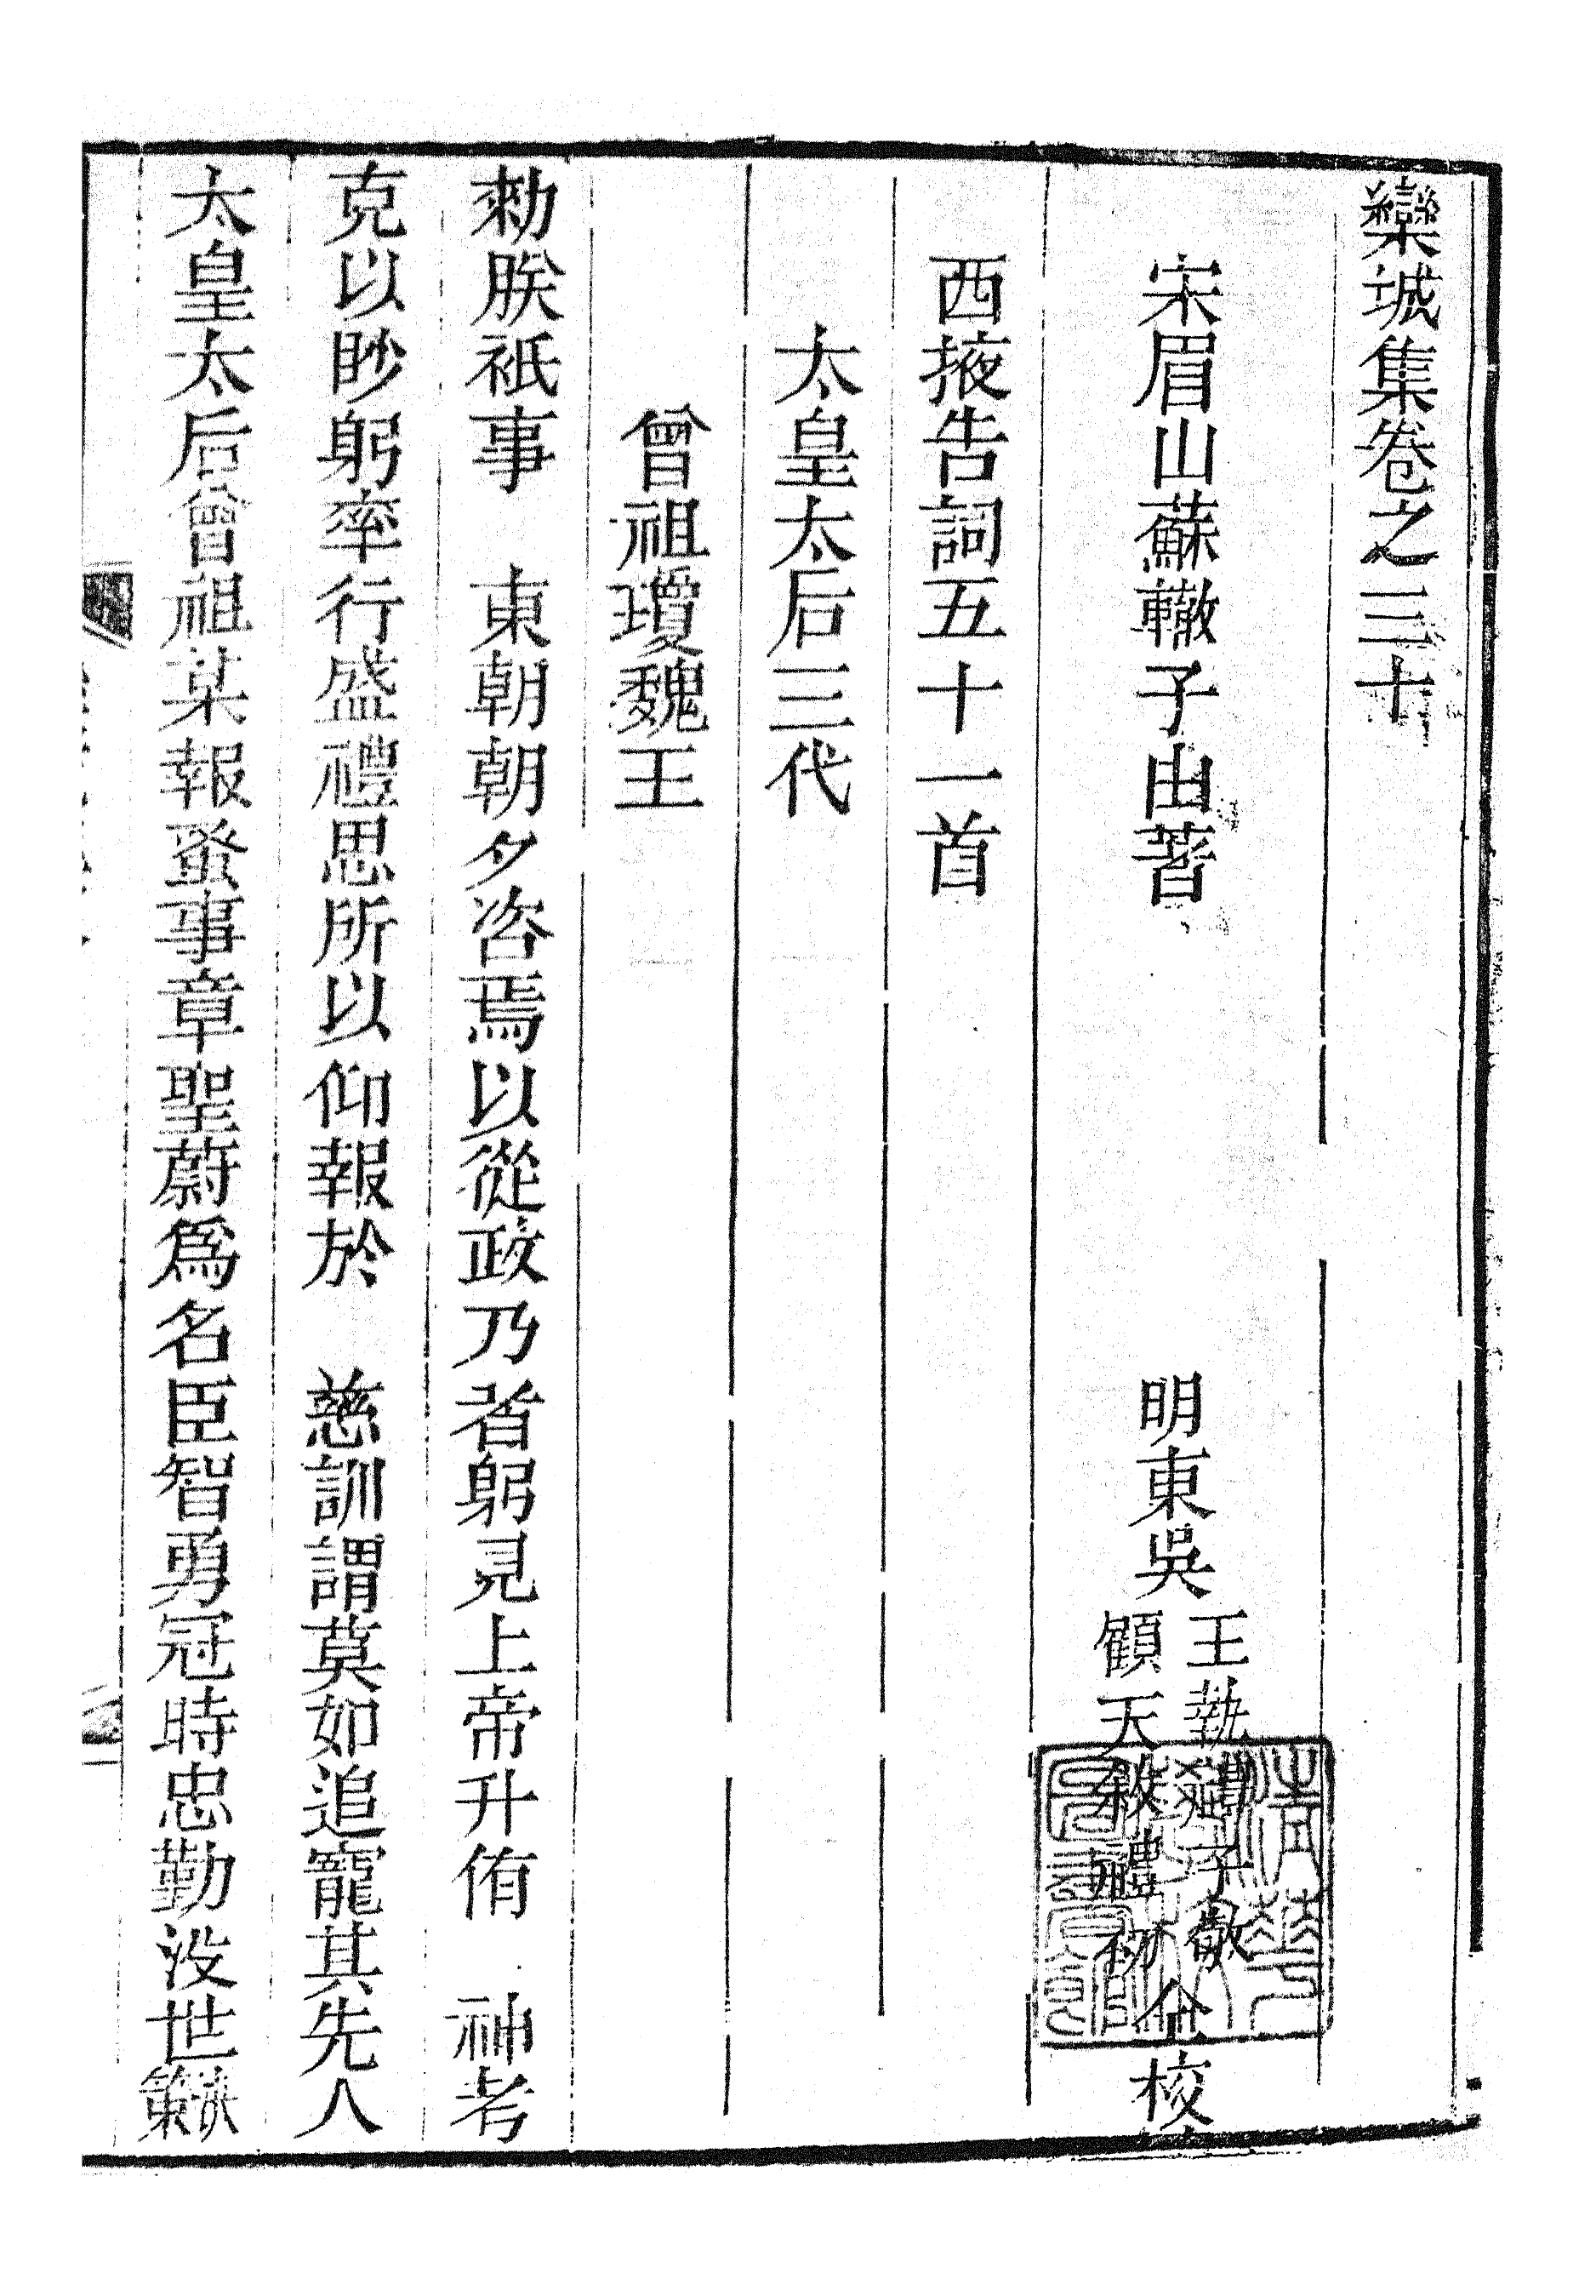 欒城集卷之三十
宋眉山蘇轍子由著　明東吳
王執禮子敬
顧天敘禮初
仝校
西掖告詞五十一首
太皇太后三代
曾祖瓊魏王
勑朕祗事　東朝朝夕咨焉以從政乃者躬見上帝升侑　神考
克以眇躬率行盛禮思所以仰報於　慈訓謂莫如追寵其先人
太皇太后曾祖某報蚤事章聖蔚爲名臣智勇冠時忠勤没世